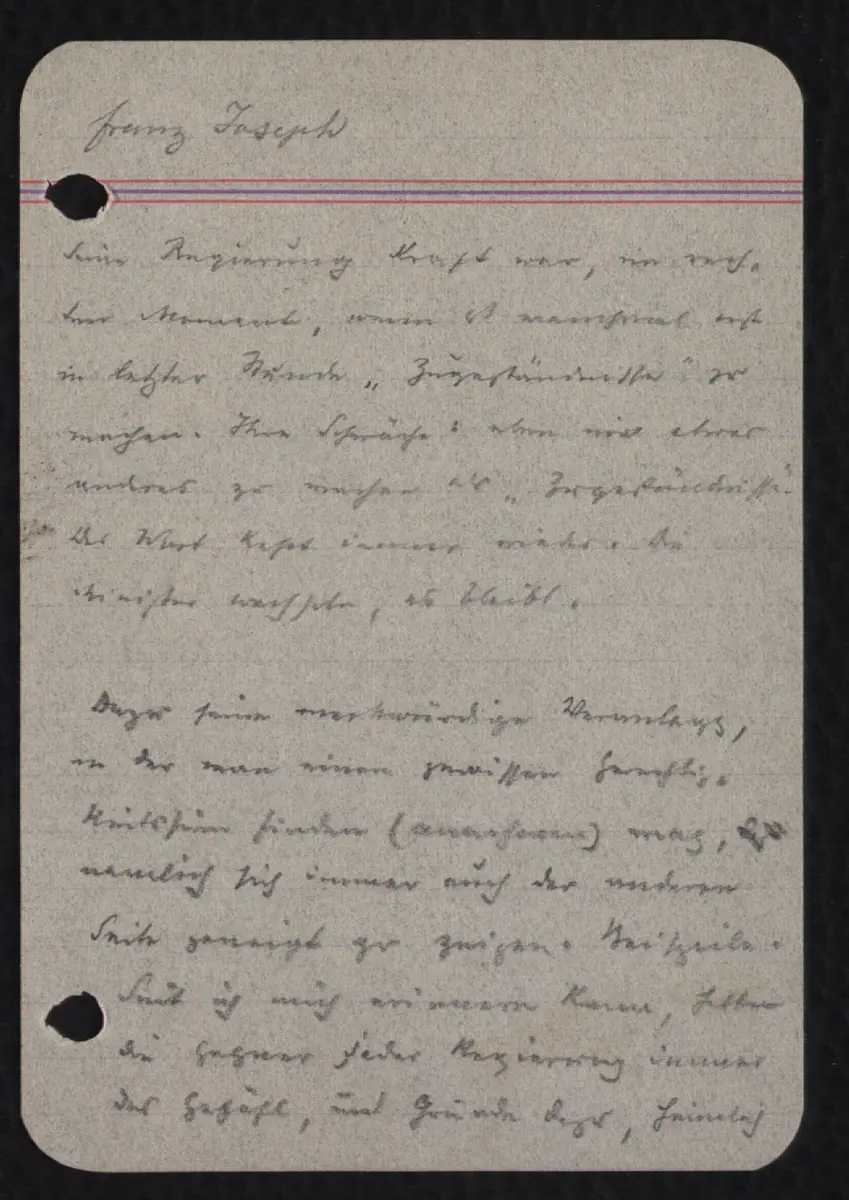 Franz Joseph
Seine Regierung Kraft war, im rech-
ten Moment, wenn es manchmal erst
in letzter Stunde „Zugeständnisse" zu
machen. Ihre Schwäche: eben nie etwas
anderes zu machen als „Zugeständnisse".
Das Wort kehrt immer wieder. Die
Minister wechseln, es bleibt.
Dazu seine merkwürdige Veranlagg,
in der man einen gewissen Gerechtig-
keitssinn finden (annehmen) mag,
nämlich sich immer auch der anderen
Seite geneigt zu zeigen. Beispiele:
Seit ich mich erinnern kann, hatten
die Gegner jeder Regierung immer
das Gefühl, und Gründe dazu, heimlich